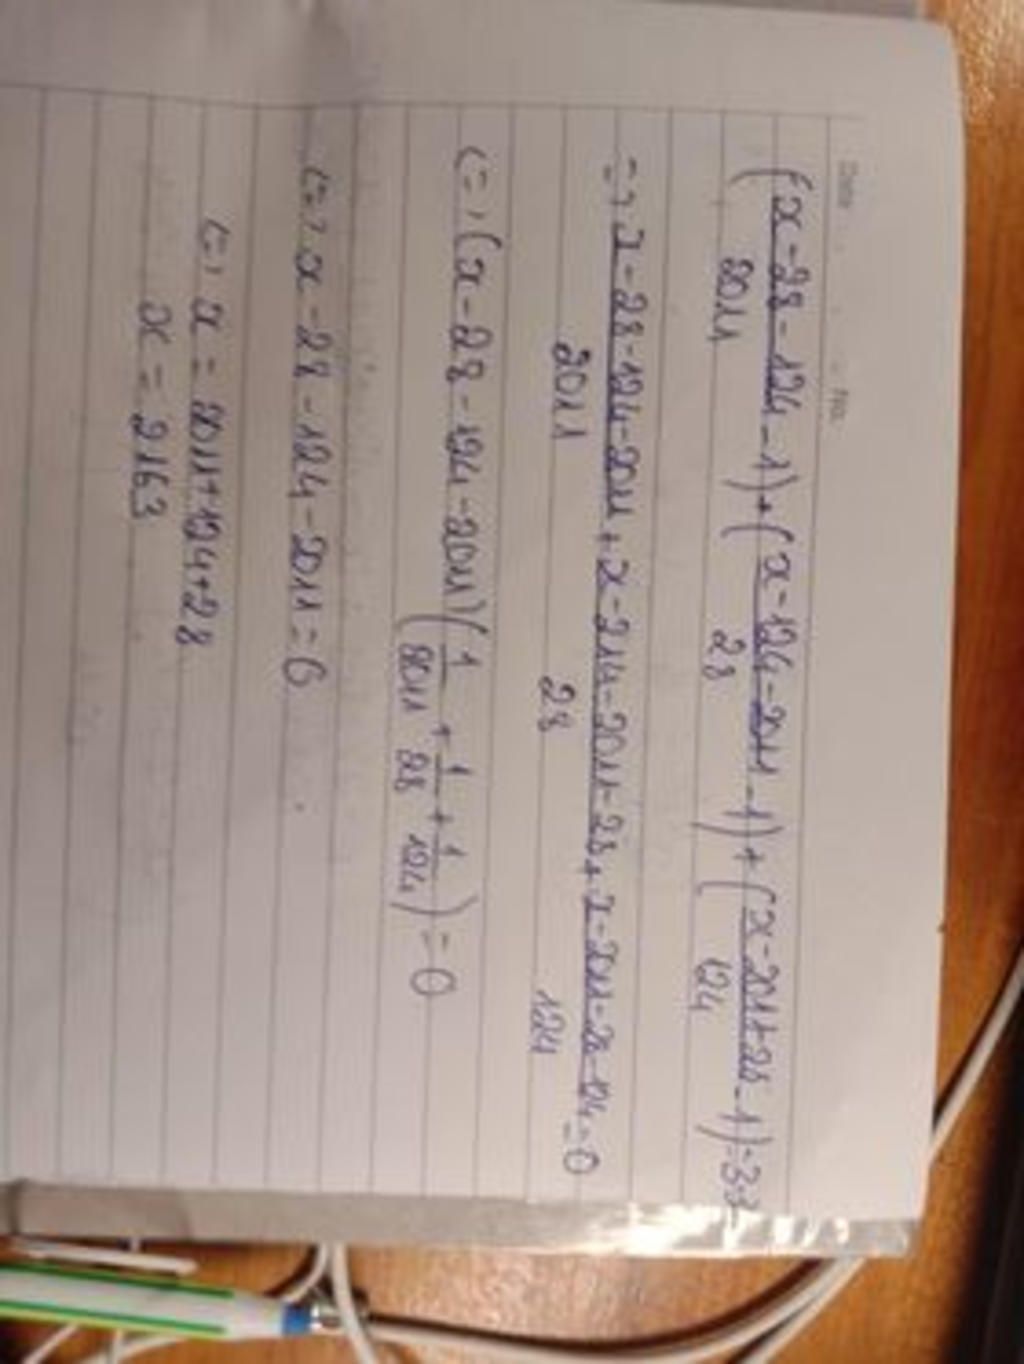 Date No.
(x-28-124/2011 - 1) + (x-124-2011/28 - 1) + (x-2011+28/124 - 1) = 3-3
=> x-28-124-2011/2011 + x-214-2011-28/28 + x-2011-28-124/124 = 0
<=> (x-28-124-2011)(1/2011 + 1/28 + 1/124) = 0
<=> x-28-124-2011 = 0
<=> x = 2011+124+28
x = 2163